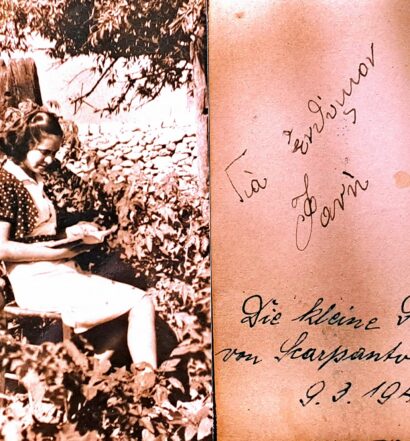 Γιὰ ἐνθύμιον
Φανὴ
Die kleine
von Scarpanto
9.3.194